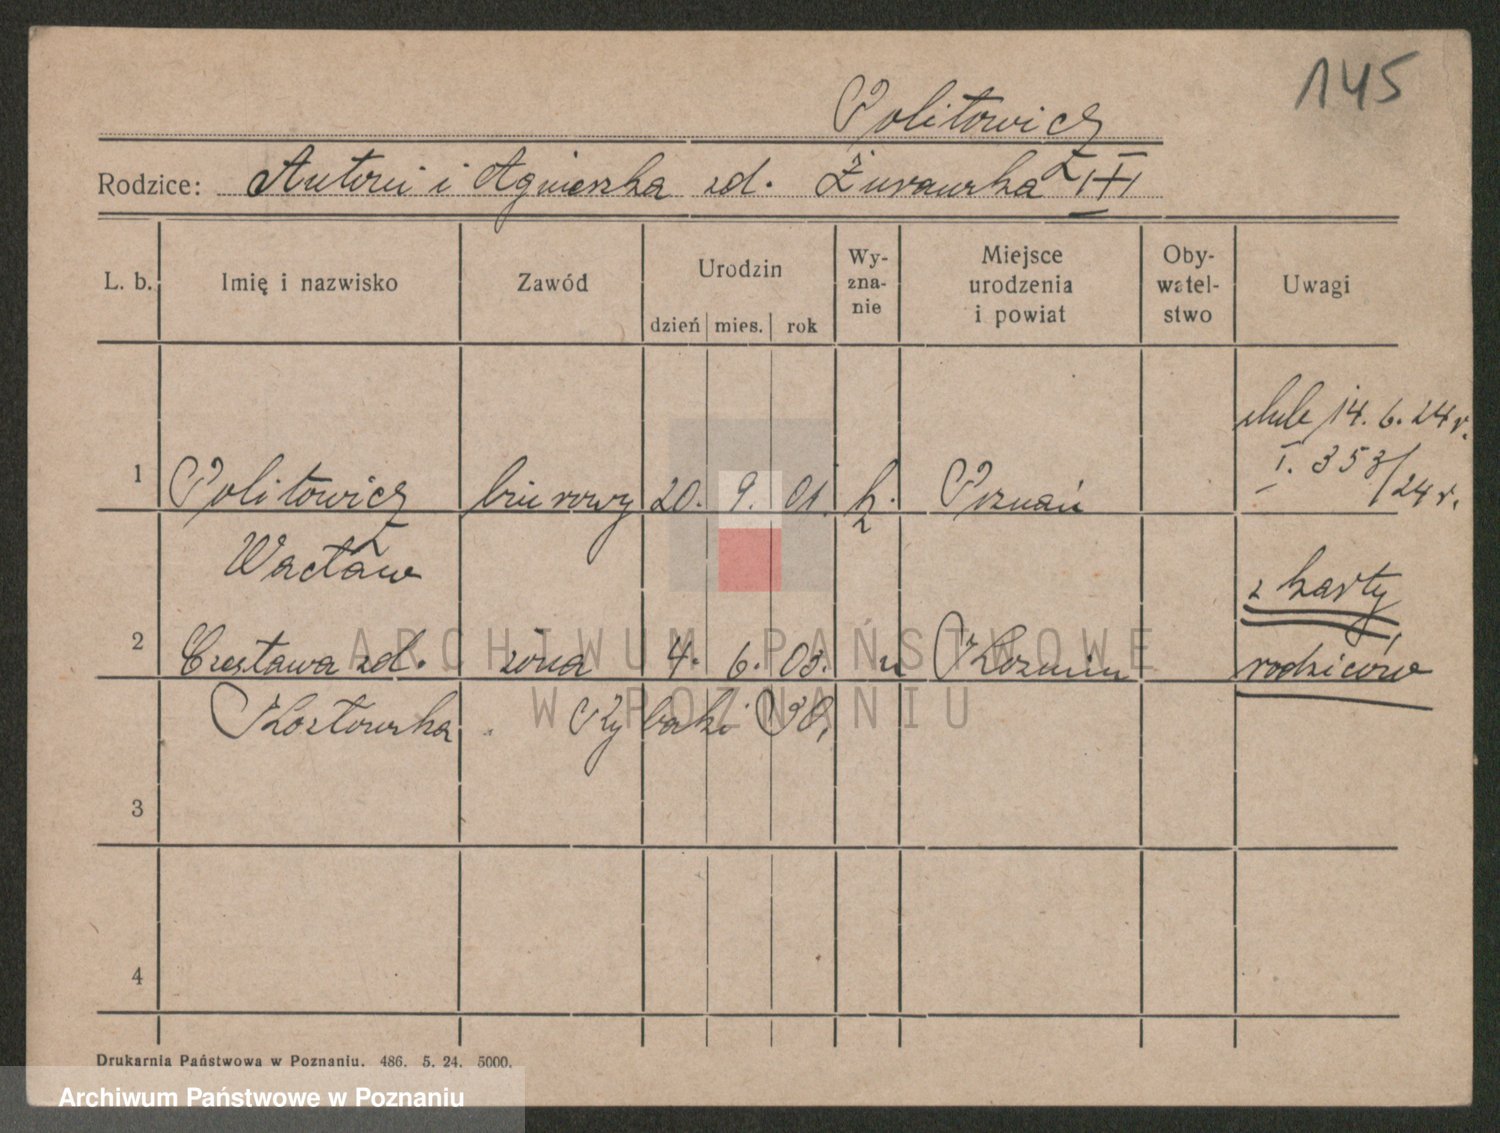 145
Politowicz
Rodzice: Antoni i Agnieszka zd. Żurawska III
L. b. Imię i nazwisko Zawód Urodzin dzień mies. rok Wy-zna-nie Miejsce urodzenia i powiat Oby-watel-stwo Uwagi
ślub 14. 6. 24 r.
I. 353/24 r.
1 Politowicz biurowy 20. 9. 01. k. Poznań
Wacław
z karty
2 Czesława zd. żona 4. 6. 03. " Koźmin rodziców
Kozłowska. Rybaki 30,
3
4
ARCHIWUM PAŃSTWOWE
W POZNANIU
Drukarnia Państwowa w Poznaniu. 486. 5. 24. 5000.
Archiwum Państwowe w Poznaniu